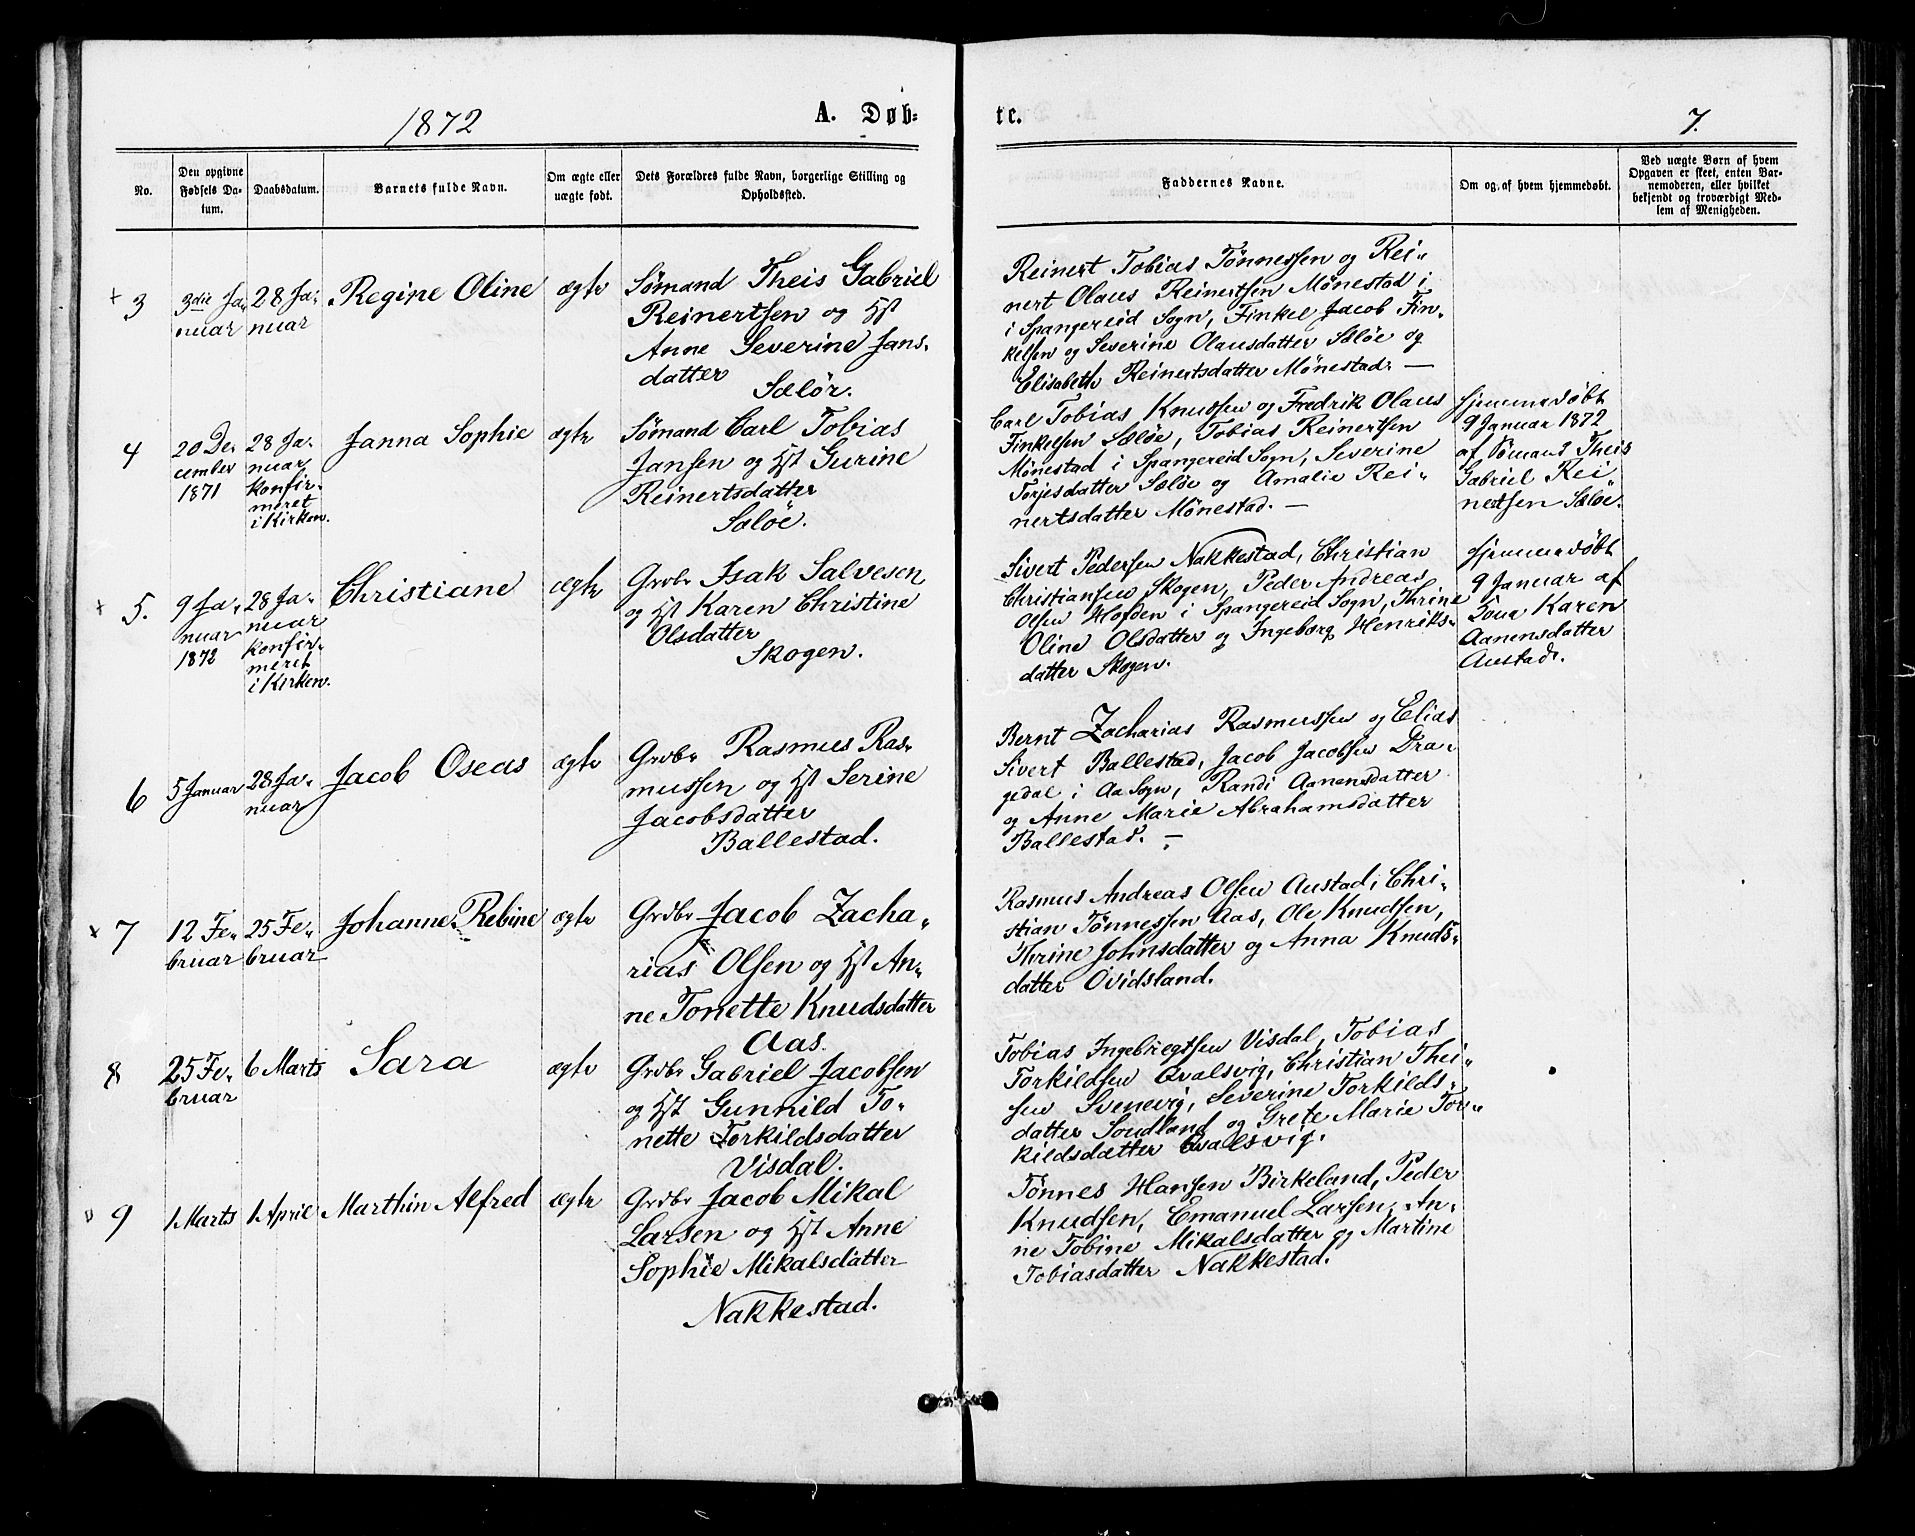 1872
A. Døb-
te.
7.
No.
Den opgivne Fødsels Da-tum.
Daabsdatum.
Barnets fulde Navn.
Om ægte eller uægte født.
Dets Forældres fulde Navn, borgerlige Stilling og Opholdssted.
Faddernes Navne.
Om og, af hvem hjemmedøbt.
Ved uægte Børn af hvem Opgaven er skeet, enten Bar-nemoderen, eller hvilket bekjendt og troværdigt Med-lem af Menigheden.
+ 3
3die Ja-
nuar
28 Ja-
nuar
Regine Oline
ægte
Sømand Theis Gabriel
Reinertsen og Hst
Anne Severine Jans-
datter
Sælör.
Reinert Tobias Tønnessen og Rei-
nert Olaus Reinertsen Mönestad i
i Spangereid Sogn, Finkel Jacob Fin-
kelsen og Severine Olausdatter Sæløe og
Elisabeth Reinertsdatter Mönestad. —
4
20 De-
cember
1871
28 Ja-
nuar
konfir-
meret
i Kirken.
Janna Sophie
ægte
Sømand Carl Tobias
Jansen og Hst Gurine
Reinertsdatter
Sæløe.
Carl Tobias Knudsen og Fredrik Olaus
Finkelsen Sæløe, Tobias Reinertsen
Mönestad i Spangereid Sogn, Severine
Torjesdatter Sæløe og Amalie Rei-
nertsdatter Mönestad. —
Hjemmedøbt
9 Januar 1872
af Sømand Theis
Gabriel Rei-
nertsen Sæløe.
x 5.
9 Ja-
nuar
1872
28 Ja-
nuar
konfir-
meret
i Kirken.
Christiane
ægte
Grdbr Isak Salvesen
og Hst Karen Christine
Olsdatter
Skogen.
Sivert Pedersen Nakkestad, Christian
Christiansen Skogen, Peder Andreas
Olsen Hofden i Spangereid Sogn, Thrine
Oline Olsdatter og Ingeborg Henriks-
datter Skogen.
Hjemmedøbt
9 Januar af
Karen
Aanensdatter
Austad.
6
5 Januar
28 Ja-
nuar
Jacob Oseas
ægte
Grdbr Rasmus Ras-
mussen og Hst Serine
Jacobsdatter
Ballestad.
Bernt Zacharias Rasmussen og Elias
Sivert Ballestad, Jacob Jacobsen Dra-
gedal i Aa Sogn, Randi Aanensdatter
og Anne Marie Abrahamsdatter
Ballestad. —
x 7
12 Fe-
bruar
25 Fe-
bruar
Johanne Rebine
ægte
Grdbr Jacob Zacha-
rias Olsen og Hst An-
ne Tonette Knudsdatter
Aas.
Rasmus Andreas Olsen Austad, Chri-
stian Tønnessen Aas, Ole Knudsen,
Thrine Johnsdatter og Anna Knuds-
datter Ovidsland.
8
25 Fe-
bruar
6 Marts
Sara
ægte
Grdbr Gabriel Jacobsen
og Hst Gunnild To-
nette Torkildsdatter
Visdal.
Tobias Ingebregtsen Visdal, Tobias
Torkildsen Qvalsvig, Christian Thei-
sen Svenevig, Severine Torkilds-
datter Soudland og Grete Marie Tor-
kildsdatter Qvalsvig.
9
1 Marts
1 April
Marthin Alfred
ægte
Grdbr Jacob Mikal
Larsen og Hst Anne
Sophie Mikalsdatter
Nakkestad.
Tønnes Hansen Birkeland, Peder
Knudsen, Emanuel Larsen, An-
ne Tobine Mikalsdatter og Martine
Tobiasdatter Nakkestad.